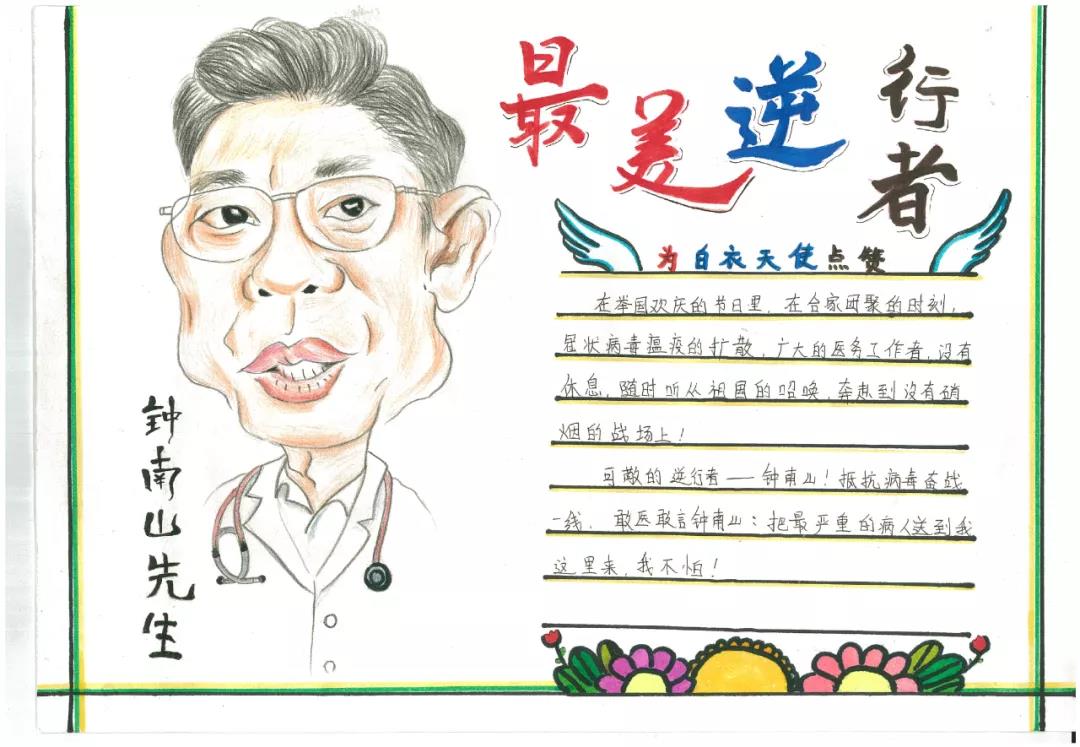 最美逆行者
为白衣天使点赞
在举国欢庆的节日里,在合家团聚的时刻,
冠状病毒瘟疫的扩散,广大的医务工作者,没有
休息,随时听从祖国的召唤,奔赴到没有硝
烟的战场上!
可敬的逆行者——钟南山!抵抗病毒奋战
一线,敢医敢言钟南山:把最严重的病人送到我
这里来,我不怕!
钟南山先生